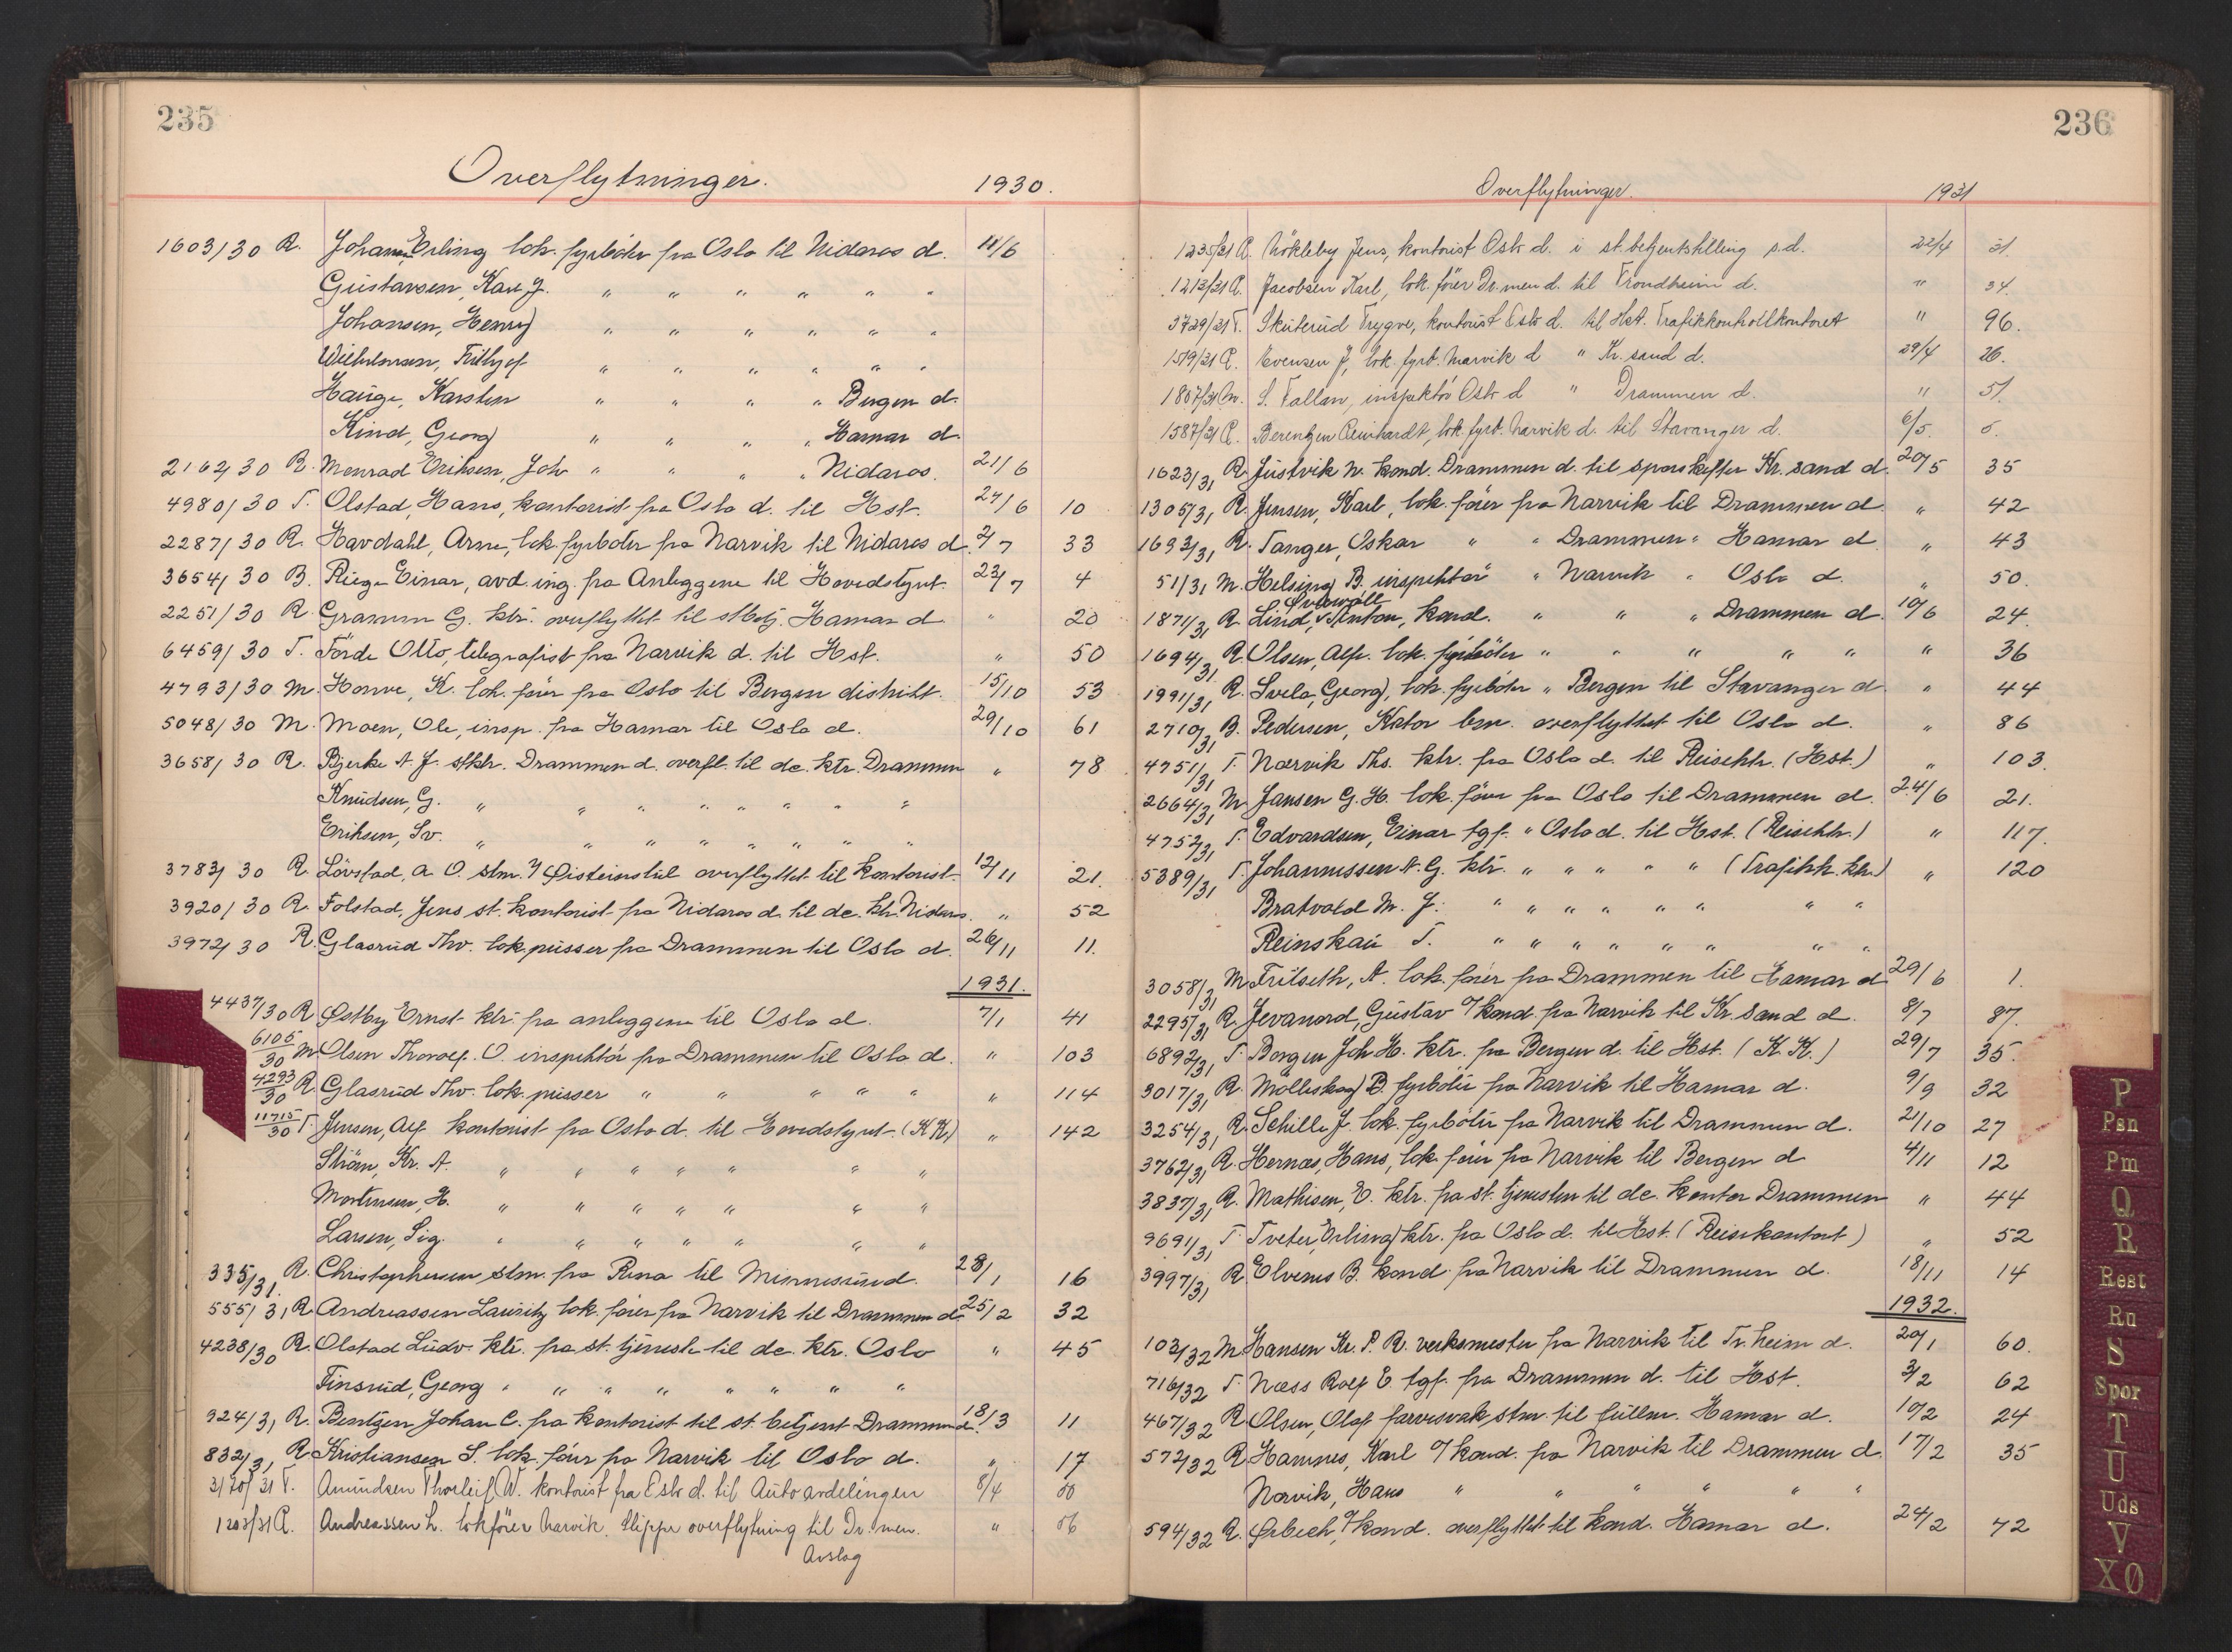 235
Overflytninger. 1930.
1603/30 R. Johansen Erling lok. fyrböter fra Oslo til Nidaros d. 11/6
Gustavsen, Karl J. " " " " " "
Johansen, Henry " " " " " "
Wilhelmsen, Fritjof " " " " " "
Hauge, Karsten " " " " Bergen d.
Kind, Georg " " " " Hamar d.
2162/30 R. Monrad Eriksen, Joh " " " " Nidaros. 21/6
4980/30 T. Olstad, Hans, kontorist fra Oslo d. til Hst. 24/6 10
2287/30 R. Havdahl, Arne, lok. fyrböter fra Narvik til Nidaros d. 2/7 33
3654/30 B. Riege Einar, avd. ing. fra Anleggene til Hovedstyret. 23/7 4
2251/30 R. Gramm G. ktr. overflyttet til stbetj. Hamar d. " 20
6459/30 T.Förde Otto, telegrafist fra Narvik d. til Hst. " 50
4793/30 M. Honve, K. lok. förer fra Oslo til Bergen distrikt. 15/10 53
5048/30 M. Moen, Ole, insp. fra Hamar til Oslo d. 29/10 61
3658/30 R. Bjerke A. J. stktr. Drammen d. overfl. til dc. ktr. Drammen " 78
Knudsen, G. " " " " " " " "
Eriksen, Sv. " " " " " " " "
3783/30 R. Lövstad, A. O. stm. v/ Øisteinstul overflyttet til kontorist 12/11 21.
3920/30 R. Folstad, Jens st. kontorist fra Nidaros d. til dc. ktr. Nidaros. " 52
3972/30 R. Glasrud Thv. lok. pusser fra Drammen til Oslo d. 26/11 11.
1931.
4437/30 R Østby Ernst ktr. fra anleggene til Oslo d. 7/1 41
6105/30 M. Olsen Thoralf. O. inspektör fra Drammen til Oslo d. " 103
4293/30 R. Glasrud Thv. lok. pusser " " " " " " 114
11715/30 T. Jensen, Alf kontorist fra Oslo d. til Hovedstyret (K K) " 142
Ström, Kr. A. " " " " " " "
Mortensen, H. " " " " " " "
Larsen, Sig. " " " " " " "
335/31. R. Christophersen stm. fra Rena til Minnesund. 28/1 16
555/31 R Andreassen Lauritz lok. förer fra Narvik til Drammen d. 25/2 32
4238/30 R. Olstad Ludv. ktr. fra st. tjeneste til dc. ktr. Oslo " 45
Finsrud, Georg " " " " " " " "
924/31 R. Bentzen Johan C. fra kontorist til st. betjent Drammen d. 18/3 11
832/31 R. Kristiansen S. lok. förer fra Narvik til Oslo d. " 17
3170/31 T. Amundsen Thorleif W. kontorist fra Oslo d. til Autoavdelingen 8/4 50
1203/31 R. Andreassen L. lokförer Narvik. Slipper overflytning til Dr. men. " 56
Avslag
236
Overflytninger. 1931
1235/31 R. Nökleby Jens, kontorist Oslo d. i st. betjentstilling s.d. 22/4 31.
1213/31 R. Jacobsen Karl, lok. förer Dr.men d. til Trondheim d. " 34.
3729/31 T. Skuterud Trygve, kontorist Oslo d. til Hst. Trafikkontrollkontoret " 96.
1519/31 R. Evensen J, lok. fyrb. Narvik d " Kr. sand d. 29/4 26.
1807/31 M. S. Fallan, inspektör Oslo d " Drammen d. " 51
1587/31 R. Berentzen Reinhardt, lok. fyrb. Narvik d. til Stavanger d. 6/5. 5.
1623/31 R. Justvik N. kond. Drammen d. til sporskifter Kr. sand d. 20/5 35
1305/31 R. Jensen, Karl, lok. förer fra Narvik til Drammen d. " 42
1693/31 R. Tanger, Oskar " " Drammen " Hamar d. " 43
51/31 M. Helsing B. inspektör " Narvik " Oslo d. " 50.
1871/31 R. Lind, Anton, kond. " " " Drammen d. 10/6 24.
1694/31 R. Olsen, Alf. lok. fyrböter " " " " " " 36
1991/31 R. Svela, Georg, lok. fyrböter " Bergen til Stavanger d. " 44
2710/31 B. Pedersen, Kator bm. overflyttet til Oslo d. " 86
4751/31 T. Norvik Ths. ktr. fra Oslo d. til Reisektr. (Hst.) " 103.
2664/31 M. Jansen G. H. lok. förer fra Oslo til Drammen d. 24/6 21.
4752/31 T. Edvardsen, Einar tgf. " Oslo d. til Hst. (Reisektr.) " 117.
5389/31 T. Johannessen A. G. ktr. " " " " " (Trafikk. ktr.) " 120
Bratvold M. J. " " " " " " " "
Reinskau T. " " " " " " " "
3058/31 M. Fritseth, A. lok. förer fra Drammen til Hamar d. 29/6 1.
2295/31 R. Jevanord, Gustav o/kond. fra Narvik til Kr. sand d. 8/7 87.
6892/31 T. Borgen Joh H. ktr. fra Bergen d. til Hst. (K. K.) 29/7 35.
3017/31 R. Molliskog B. fyrböter fra Narvik til Hamar d. 9/9 32
3254/31 R. Schille J. lok. fyrböter fra Narvik til Drammen d. 21/10 27
3762/31 R. Hernæs, Hans, lok. förer fra Narvik til Bergen d 4/11 12
3837/31 R. Mathisen, E. ktr. fra st. tjenesten til dc. kontor Drammen " 44
9691/31 T. Tveter, Erling ktr. fra Oslo d. til Hst. (Reisekontoret) " 52
3997/31 R. Elvenes B. kond. fra Narvik til Drammen d. 18/11 14
1932.
103/32 M. Hansen Kr. P. R. verksmester fra Narvik til Tr. heim d. 20/1 60.
716/32 T. Næss Rolf E. tgf. fra Drammen d. til Hst. 3/2 62
467/32 R. Olsen, Olaf farvesvak stm. til fullm. Hamar d. 10/2 24
572/32 R. Hamnes, Karl o/kond. fra Narvik til Drammen d. 17/2 35
Norvik, Hans " " " " " "
594/32 R. Ørbech, o/kond. overflyttet til kond. Hamar d. 24/2 72
P
Psn
Pm
Q
R
Rest
Ru
S
Spor
T
U
Uds
V
XØ